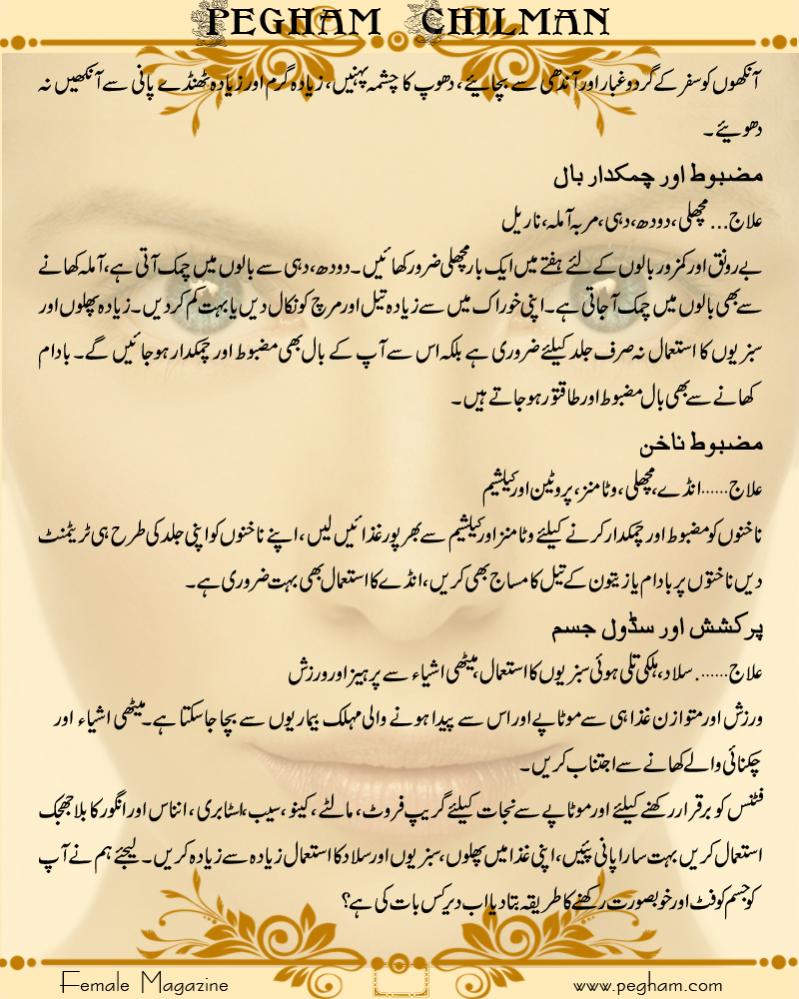 PEGHAM CHILMAN
آنکھوں کو سفر کے گرد و غبار اور آندھی سے بچایئے، دھوپ کا چشمہ پہنیں، زیادہ گرم اور زیادہ ٹھنڈے پانی سے آنکھیں نہ
دھویئے۔
مضبوط اور چمکدار بال
علاج... مچھلی، دودھ، دہی، مربہ آملہ، ناریل
بے رونق اور کمزور بالوں کے لئے ہفتے میں ایک بار مچھلی ضرور کھائیں۔ دودھ، دہی سے بالوں میں چمک آتی ہے، آملہ کھانے
سے بھی بالوں میں چمک آ جاتی ہے۔ اپنی خوراک میں سے زیادہ تیل اور مرچ کو نکال دیں یا بہت کم کر دیں۔ زیادہ پھلوں اور
سبزیوں کا استعمال نہ صرف جلد کیلئے ضروری ہے بلکہ اس سے آپ کے بال بھی مضبوط اور چمکدار ہو جائیں گے۔ بادام
کھانے سے بھی بال مضبوط اور طاقتور ہو جاتے ہیں۔
مضبوط ناخن
علاج......انڈے، مچھلی، وٹامنز، پروٹین اور کیلشیم
ناخنوں کو مضبوط اور چمکدار کرنے کیلئے وٹامنز اور کیلشیم سے بھرپور غذائیں لیں، اپنے ناخنوں کو اپنی جلد کی طرح ہی ٹریٹمنٹ
دیں ناختوں پر بادام یا زیتون کے تیل کا مساج بھی کریں، انڈے کا استعمال بھی بہت ضروری ہے۔
پرکشش اور سڈول جسم
علاج....... سلاد، ہلکی تلی ہوئی سبزیوں کا استعمال، میٹھی اشیاء سے پرہیز اور ورزش
ورزش اور متوازن غذا ہی سے موٹاپے اور اس سے پیدا ہونے والی مہلک بیماریوں سے بچا جا سکتا ہے۔ میٹھی اشیاء اور
چکنائی والے کھانے سے اجتناب کریں۔
فٹنس کو برقرار رکھنے کیلئے اور موٹاپے سے نجات کیلئے گریپ فروٹ، مالٹے، کینو، سیب، اسٹابری، انناس اور انگور کا بلا جھجک
استعمال کریں بہت سارا پانی پئیں، اپنی غذا میں پھلوں، سبزیوں اور سلاد کا استعمال زیادہ سے زیادہ کریں۔ لیجئے ہم نے آپ
کو جسم کو فٹ اور خوبصورت رکھنے کا طریقہ بتا دیا اب دیر کس بات کی ہے؟
Female Magazine
www.pegham.com